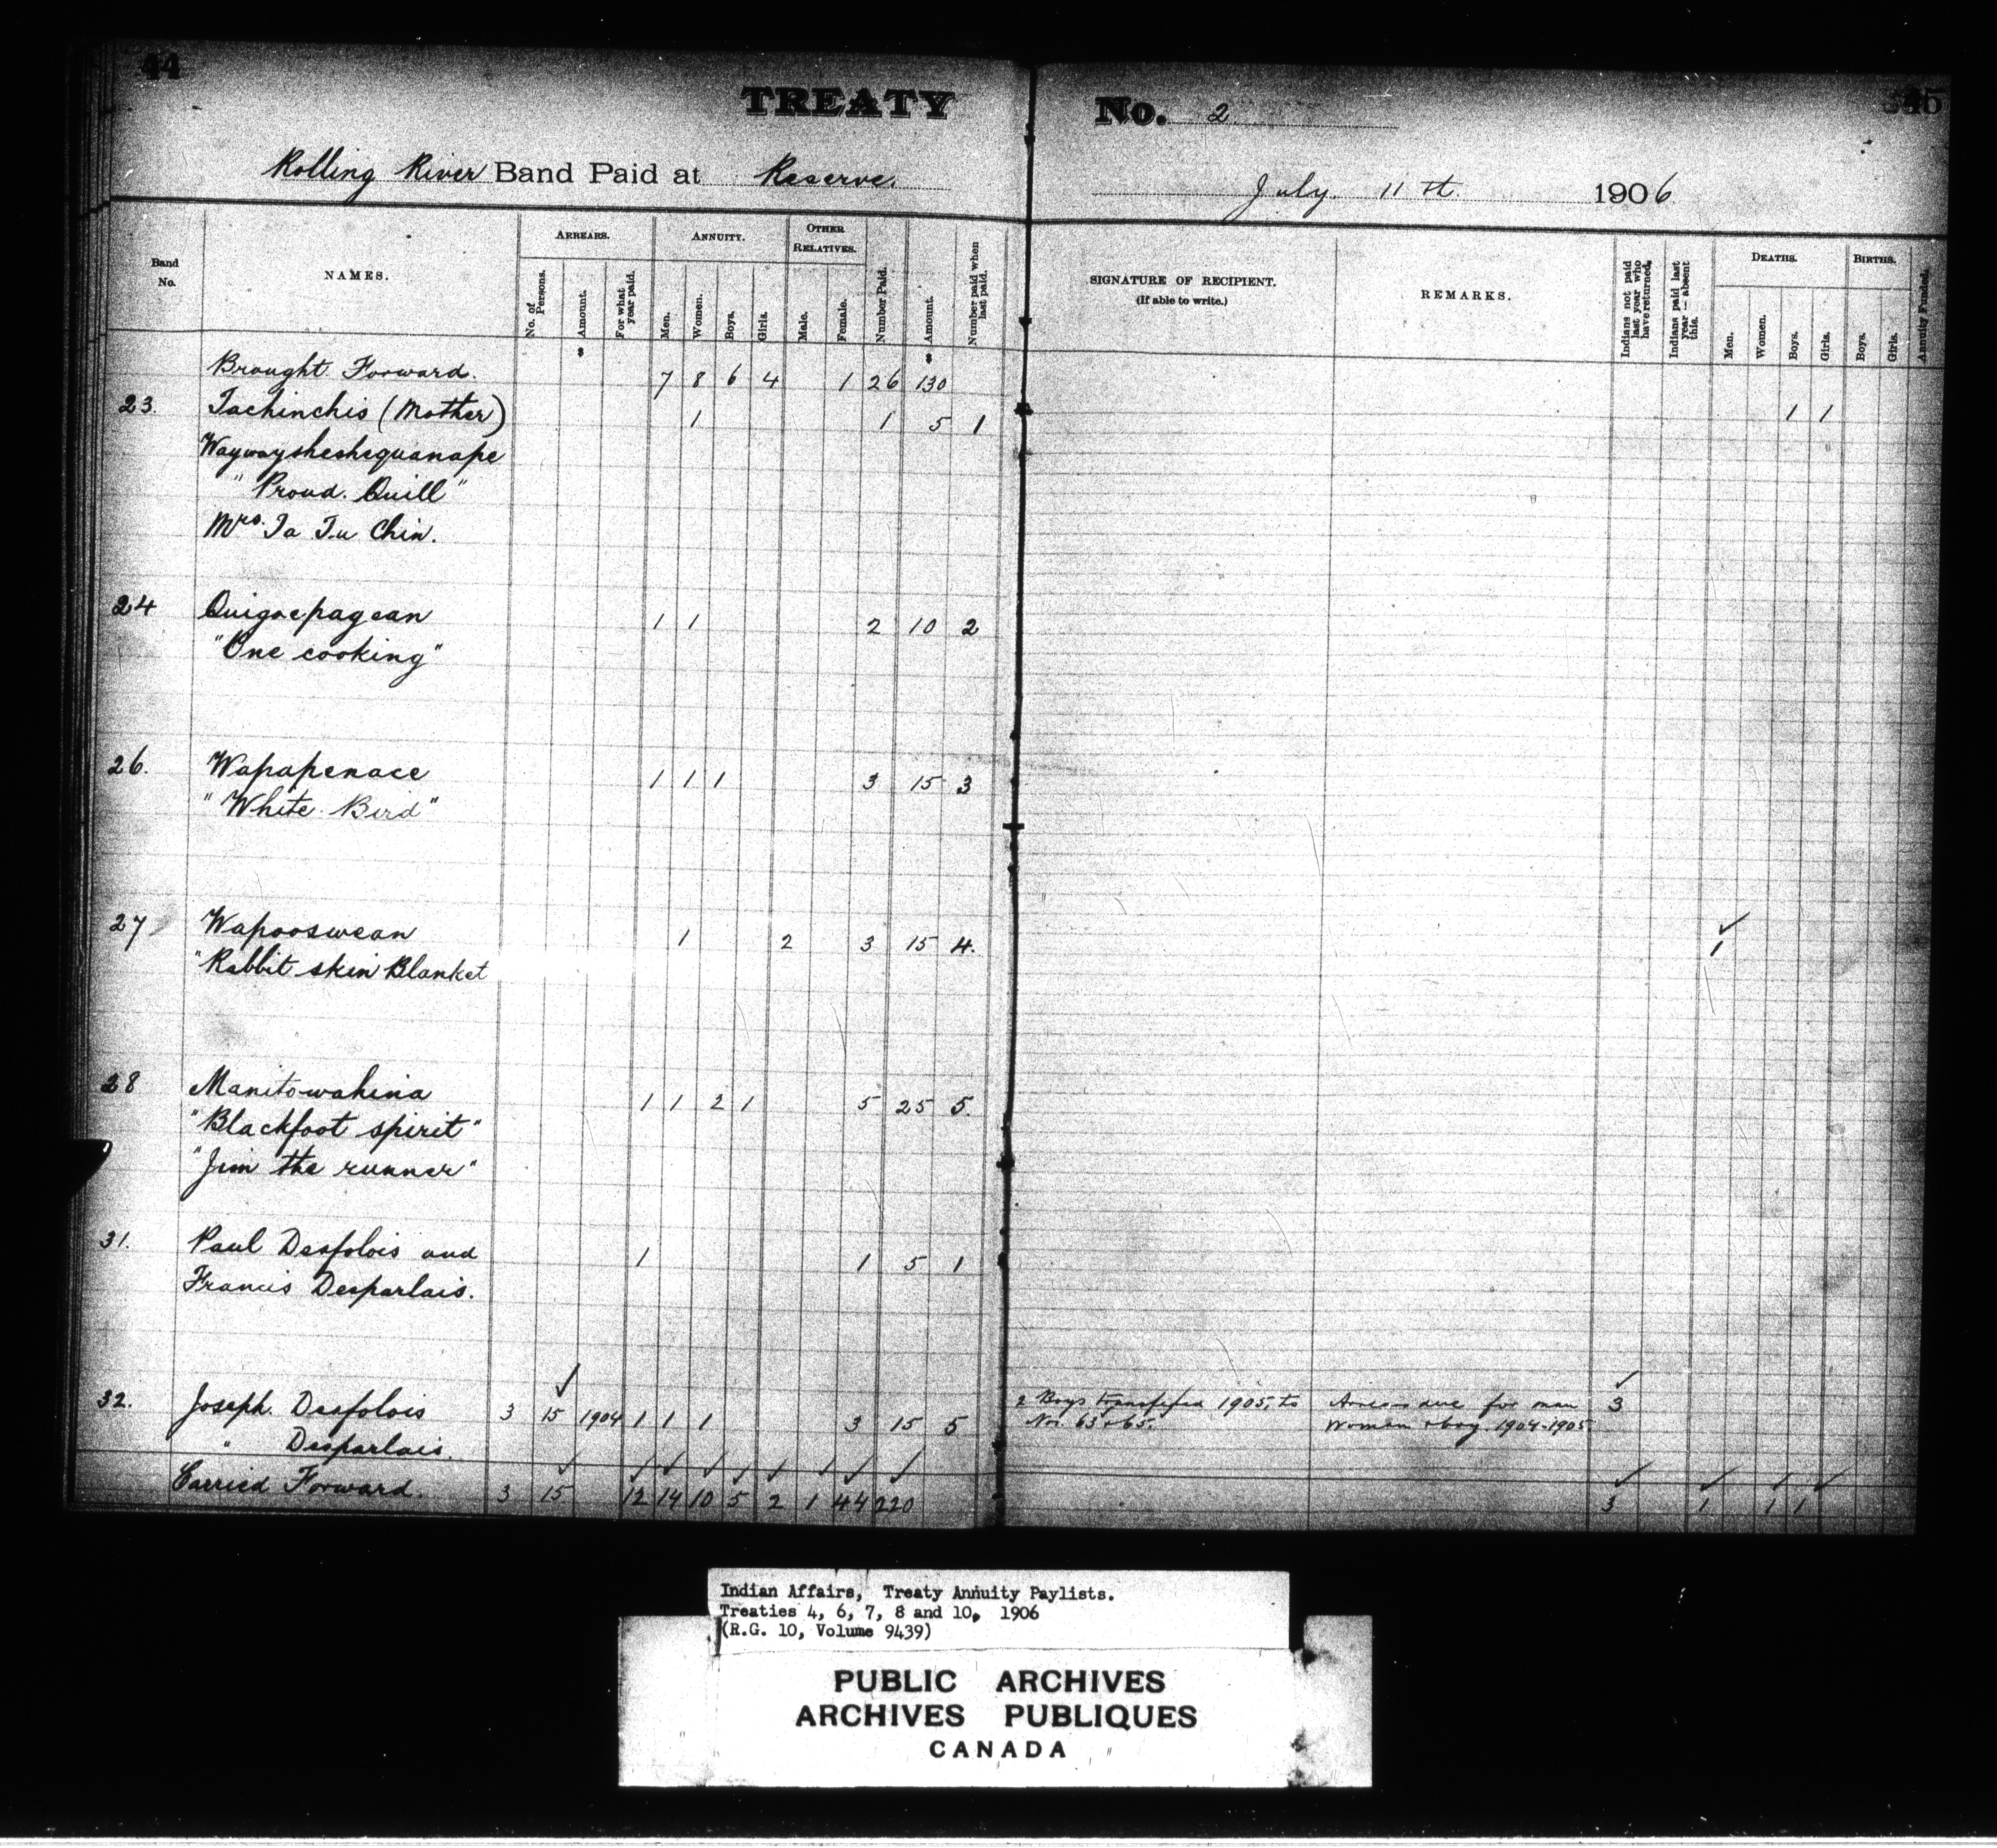 44
TREATY No. 2
Rolling River Band Paid at Reserve. July. 11th. 1906
Band No.
NAMES.
ARREARS.
No. of Persons.
Amount.
For what year paid.
ANNUITY.
Men.
Women.
Boys.
Girls.
OTHER RELATIVES.
Male.
Female.
Number Paid.
Amount.
Number paid when last paid.
SIGNATURE OF RECIPIENT.
(If able to write.)
REMARKS.
Indians not paid last year who have returned.
Indians paid last year — absent this.
DEATHS.
Men.
Women.
Boys.
Girls.
BIRTHS.
Boys.
Girls.
Annuity Funded.
Brought Forward. 7 8 6 4 1 26 130
23. Tachinchis (Mother) 1 1 5 1 1 1
Waywaysheshequanape
"Proud. Quill"
Mrs. Ta Tu Chin.
24 Quigoepagean 1 1 2 10 2
"One cooking"
26. Wapapenace 1 1 1 3 15 3
"White Bird"
27 Wapooswean 1 2 3 15 4. 1
"Rabbit skin Blanket
28 Manitowahina 1 1 2 1 5 25 5.
"Blackfoot spirit"
"Jim the runner"
31. Paul Desfolois and 1 1 5 1
Francis Desparlais.
32. Joseph. Desfolois 3 15 1904 1 1 1 3 15 5 2 Boys transferred 1905, to Arrears due for man 3
" Desparlais. Nos. 63 & 65. Woman & boy. 1904-1905
Carried Forward. 3 15 12 14 10 5 2 1 44 220 3 1 1 1
Indian Affairs, Treaty Annuity Paylists.
Treaties 4, 6, 7, 8 and 10, 1906
(R.G. 10, Volume 9439)
PUBLIC ARCHIVES
ARCHIVES PUBLIQUES
CANADA